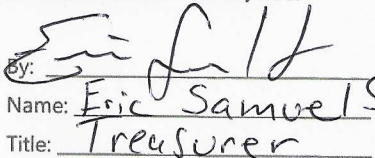 By:
Name: Eric Samuels
Title: Treasurer